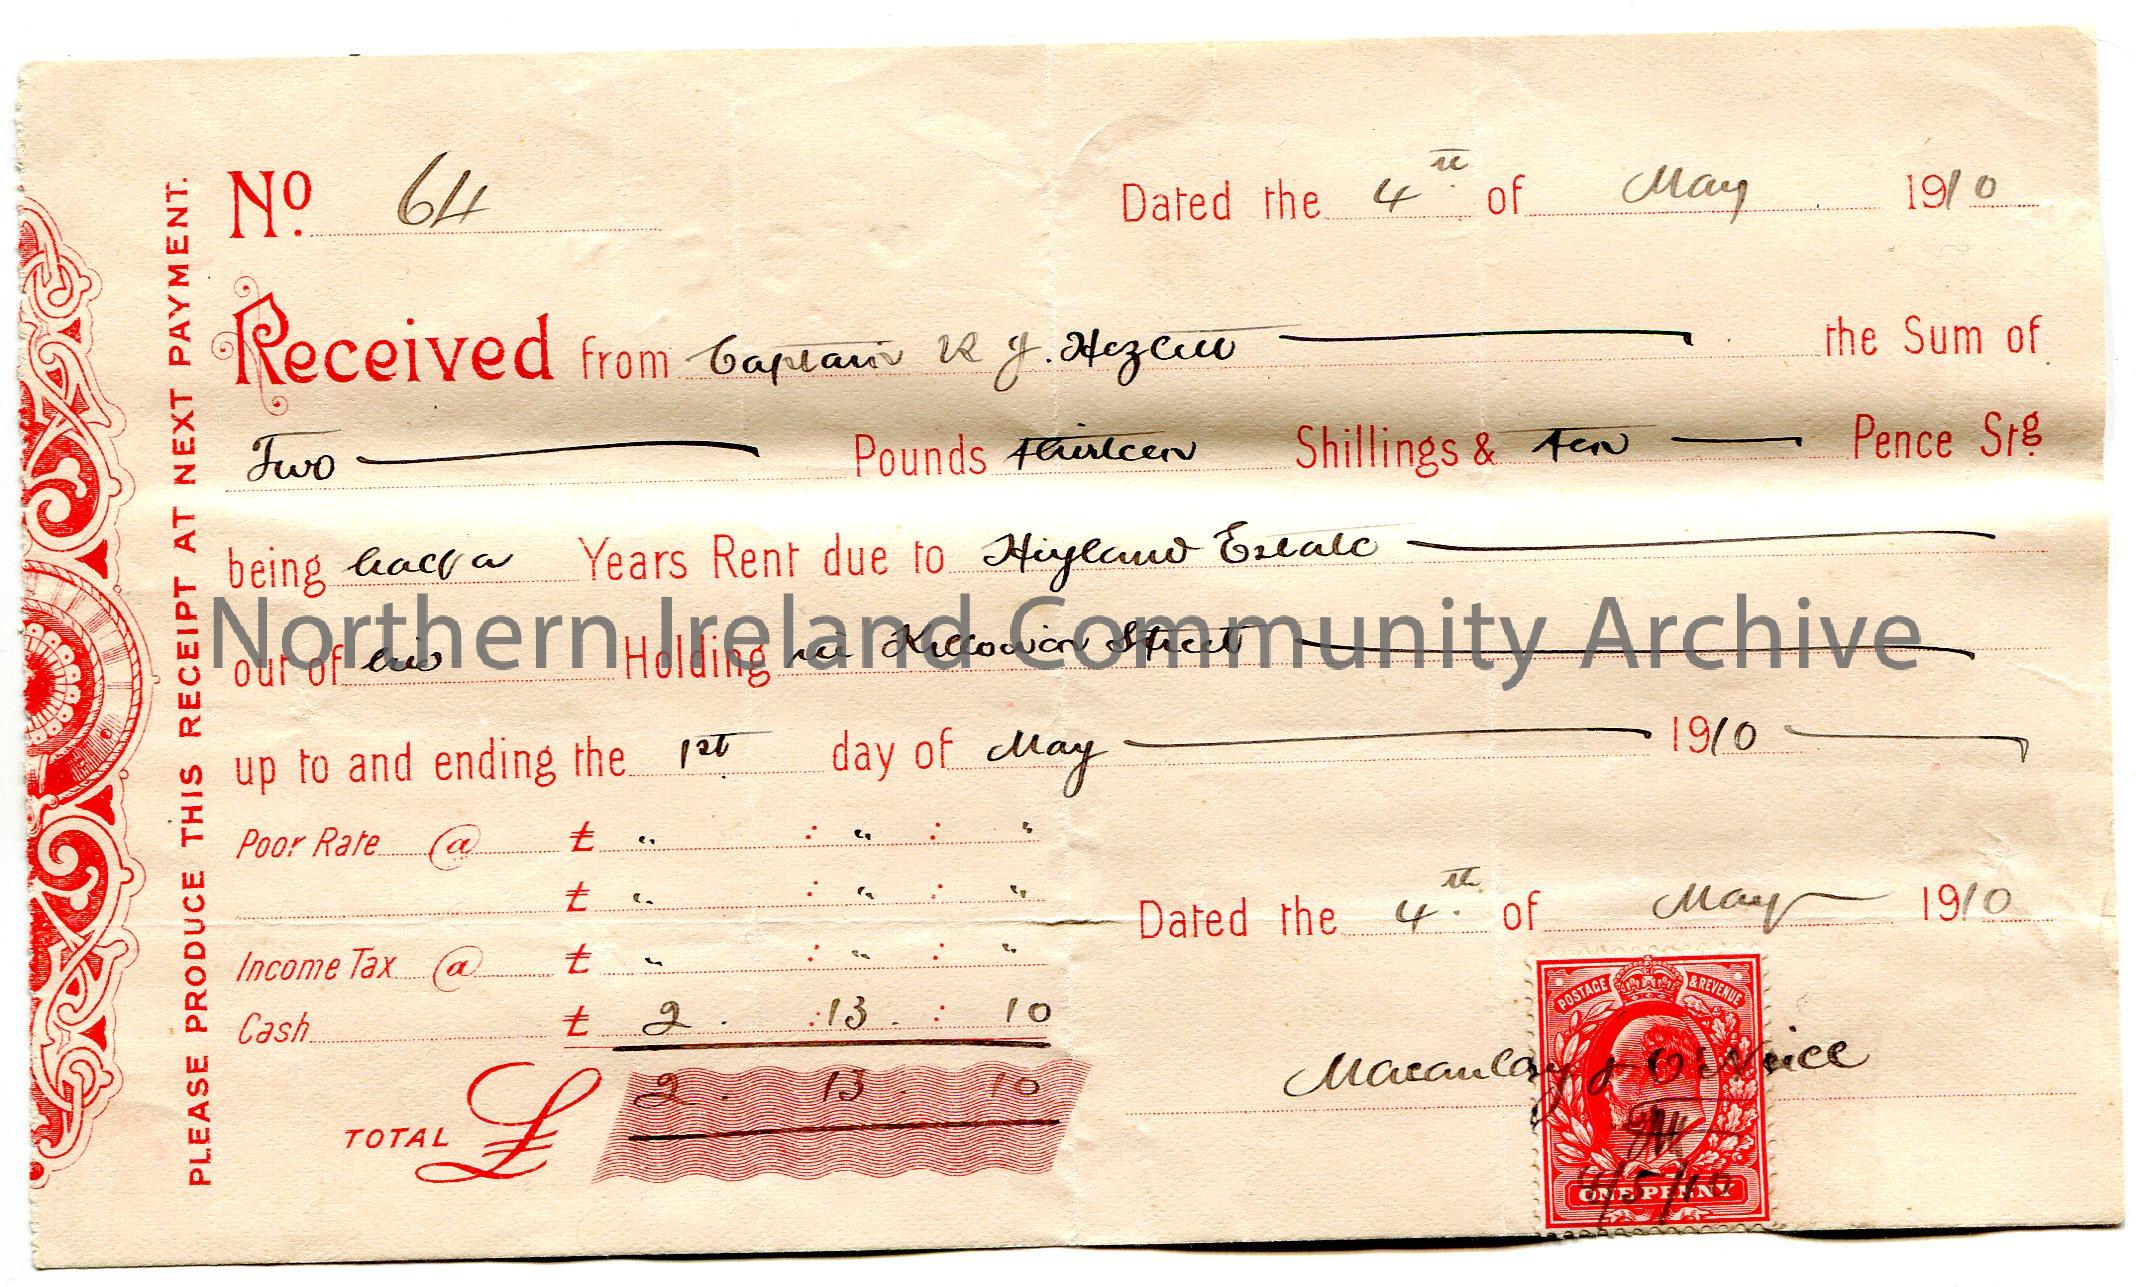 PLEASE PRODUCE THIS RECEIPT AT NEXT PAYMENT.
No. 64 Dated the 4th of May 1910
Received from Captain R J. Hezlett the Sum of
Two Pounds thirteen Shillings & ten Pence Stg
being half a Years Rent due to Hyland Estate
out of his Holding in Killowen Street
up to and ending the 1st day of May 1910
Poor Rate @ £ " : " : "
£ " : " : "
Income Tax @ £ " : " : "
Cash £ 2 . : 13 . : 10
TOTAL £ 2 . 13 . 10
Dated the 4th of May 1910
POSTAGE & REVENUE
Macaulay & O'Neill
4/5/10
ONE PENNY
Northern Ireland Community Archive